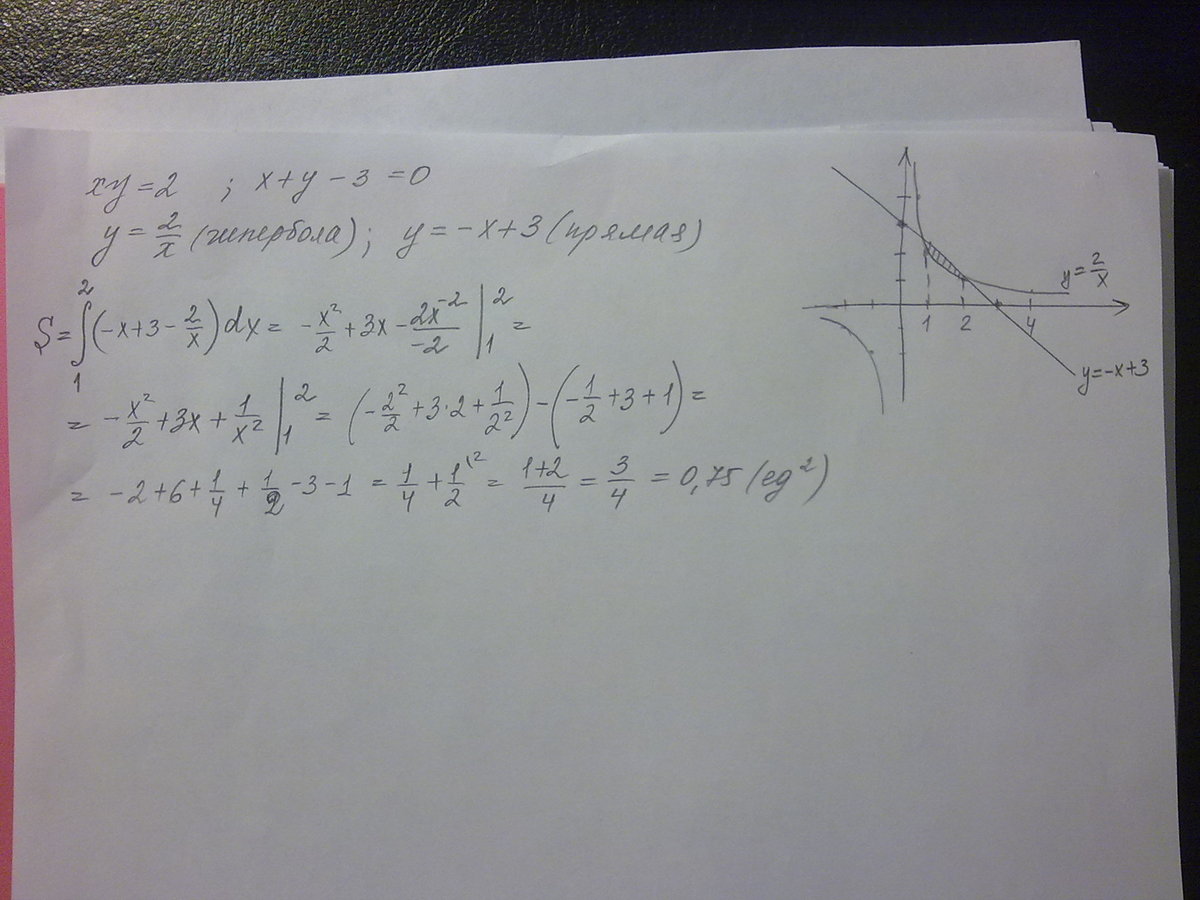 xy = 2 ; x + y − 3 = 0
y = 2/x (гипербола); y = −x + 3 (прямая)
S = ∫₁² (−x + 3 − 2/x) dx = −x²/2 + 3x − 2x⁻²/−2 |₁² =
= −x²/2 + 3x + 1/x² |₁² = (−2²/2 + 3·2 + 1/2²) − (−1/2 + 3 + 1) =
= −2 + 6 + 1/4 + 1/2 − 3 − 1 = 1/4 + 1/2 \² = (1+2)/4 = 3/4 = 0,75 (ед²)
y = 2/x
1 2 4
y = −x + 3